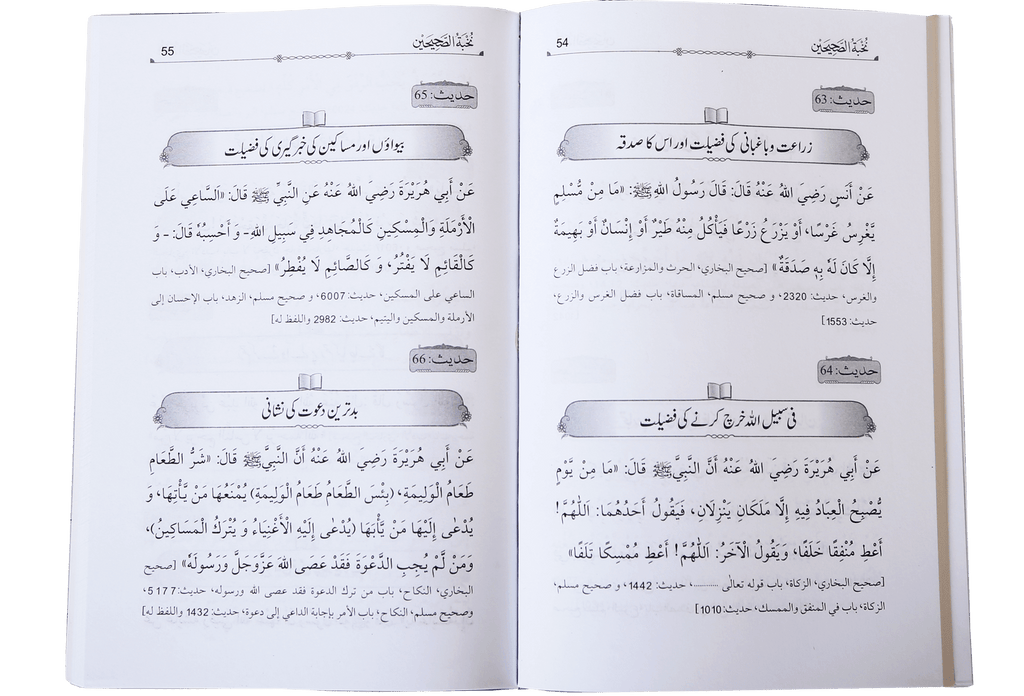 نُخْبَةُ الصَّحِيْحَيْن
54
حديث: 63
زراعت وباغبانی کی فضیلت اور اس کا صدقہ
عَنْ أَنَسٍ رَضِيَ اللهُ عَنْهُ قَالَ: قَالَ رَسُولُ اللهِ ﷺ: «مَا مِنْ مُّسْلِمٍ
يَّغْرِسُ غَرْسًا، أَوْ يَزْرَعُ زَرْعًا فَيَأْكُلُ مِنْهُ طَيْرٌ أَوْ إِنْسَانٌ أَوْ بَهِيمَةٌ
إِلَّا كَانَ لَهُ بِهٖ صَدَقَةٌ» [صحيح البخاري، الحرث والمزارعة، باب فضل الزرع
والغرس، حديث: 2320، و صحيح مسلم، المساقاة، باب فضل الغرس والزرع،
حديث: 1553]
حديث: 64
فی سبیل اللہ خرچ کرنے کی فضیلت
عَنْ أَبِي هُرَيْرَةَ رَضِيَ اللهُ عَنْهُ أَنَّ النَّبِيَّ ﷺ قَالَ: «مَا مِنْ يَّوْمٍ
يُّصْبِحُ الْعِبَادُ فِيهِ إِلَّا مَلَكَانِ يَنْزِلَانِ، فَيَقُولُ أَحَدُهُمَا: اَللّٰهُمَّ!
أَعْطِ مُنْفِقًا خَلَفًا، وَيَقُولُ الْآخَرُ: اَللّٰهُمَّ! أَعْطِ مُمْسِكًا تَلَفًا»
[صحيح البخاري، الزكاة، باب قوله تعالٰى ..........، حديث: 1442، و صحيح مسلم،
الزكاة، باب في المنفق والممسك، حديث: 1010]
نُخْبَةُ الصَّحِيْحَيْن
55
حديث: 65
بیواؤں اور مساکین کی خبرگیری کی فضیلت
عَنْ أَبِي هُرَيْرَةَ رَضِيَ اللهُ عَنْهُ عَنِ النَّبِيِّ ﷺ قَالَ: «اَلسَّاعِي عَلَى
الْأَرْمَلَةِ وَالْمِسْكِينِ كَالْمُجَاهِدِ فِي سَبِيلِ اللهِ- وَ أَحْسِبُهُ قَالَ: - وَ
كَالْقَائِمِ لَا يَفْتُرُ، وَ كَالصَّائِمِ لَا يُفْطِرُ» [صحيح البخاري، الأدب، باب
الساعي على المسكين، حديث: 6007، و صحيح مسلم، الزهد، باب الإحسان إلى
الأرملة والمسكين واليتيم، حديث: 2982 واللفظ له]
حديث: 66
بدترین دعوت کی نشانی
عَنْ أَبِي هُرَيْرَةَ رَضِيَ اللهُ عَنْهُ أَنَّ النَّبِيَّ ﷺ قَالَ: «شَرُّ الطَّعَامِ
طَعَامُ الْوَلِيمَةِ، (بِئْسَ الطَّعَامُ طَعَامُ الْوَلِيمَةِ) يُمْنَعُهَا مَنْ يَّأْتِهَا، وَ
يُدْعٰى إِلَيْهَا مَنْ يَّأْبَهَا (يُدْعٰى إِلَيْهِ الْأَغْنِيَاءُ وَ يُتْرَكُ الْمَسَاكِينُ)،
وَمَنْ لَّمْ يُجِبِ الدَّعْوَةَ فَقَدْ عَصَى اللهَ عَزَّوَجَلَّ وَرَسُولَهُ» [صحيح
البخاري، النكاح، باب من ترك الدعوة فقد عصى الله ورسوله، حديث: 5177،
وصحيح مسلم، النكاح، باب الأمر بإجابة الداعي إلى دعوة، حديث: 1432 واللفظ له]